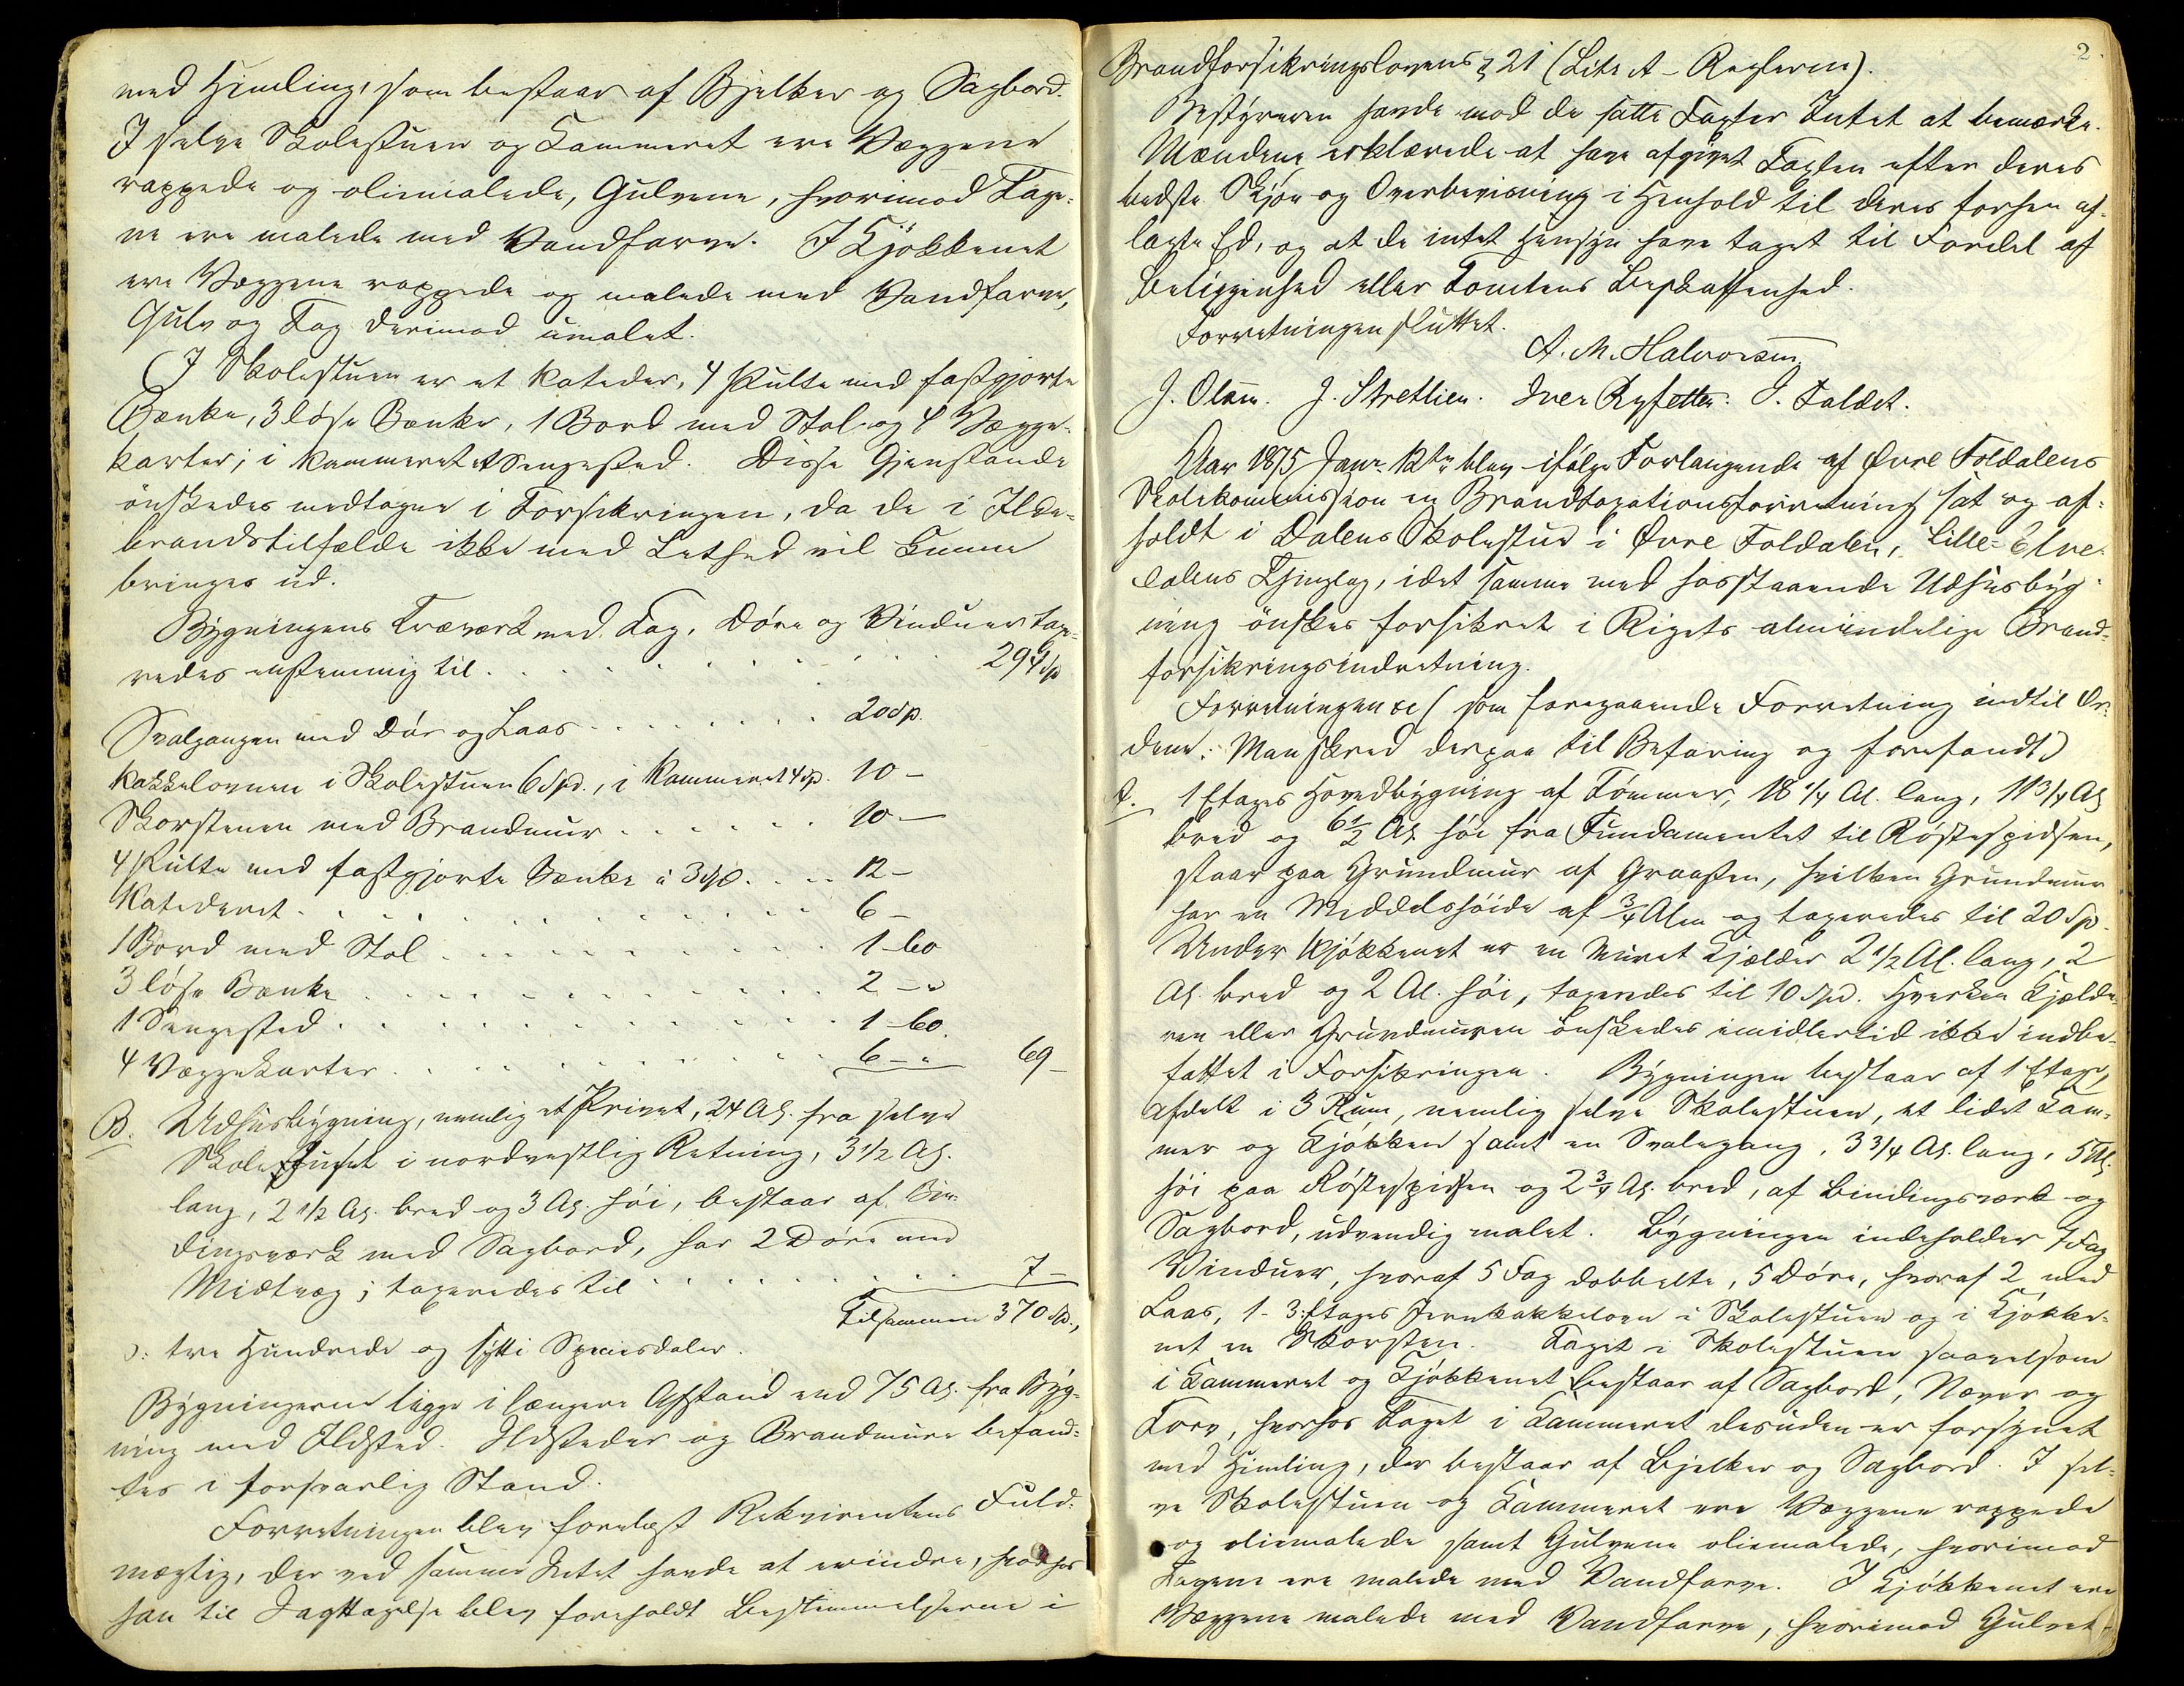 med Himling, som bestaar af Bjelker og Sagbord.
I selve Skolestuen og Kammeret ere Væggene
rappede og oliemalede, Gulvene, hvorimod Tage-
ne ere malede med Vandfarve. I Kjøkkenet
ere Væggene rappede og malede med Vandfarve,
Gulv og Tag derimod umalet.
I Skolestuen er et Kateder, 4 Pulte med fastgjorte
Bænke, 3 løse Bænke, 1 Bord med Stol og 4 Vægge-
karter; i Kammeret et Sengested. Disse Gjenstande
ønskedes medtagne i Forsikringen, da de i Ilde-
brandstilfælde ikke med Lethed vil kunne
bringes ud.
Bygningens Træværk med Tag, Døre og Vinduer tax-
redes enstemmig til . . . . . . . . 294 Sp
Svalgangen med Dør og Laas . . . . . . 20 Sp.
Kakkelovnen i Skolestuen 6 Spd., i Kammeret 4 Sp. 10 –
Skorstenen med Brandmur . . . . . . 10 –
4 Pulte med fastgjorte Bænke à 3 Sp. . . . 12 –
Katederet . . . . . . . . . . 6 –
1 Bord med Stol . . . . . . . . 1 – 60
3 løse Bænke . . . . . . . . 2 – "
1 Sengested . . . . . . . . . . 1 – 60.
4 Væggekarter . . . . . . . . 6 – " 69 –
B. Udhusbygning, nemlig et Privet, 24 Al. fra selve
Skolehuset i nordvestlig Retning, 3 1/2 Al.
lang, 2 1/2 Al. bred og 3 Al. høi, bestaar af Bin-
dingsværk med Sagbord, har 2 Døre med
Midtvæg; taxeredes til . . . . . . . 7 –
Tilsammen 370 Sp.,
ɔ: tre Hundrede og sytti Speciesdaler.
Bygningerne ligge i længere Afstand end 75 Al. fra Byg-
ning med Ildsted. Ildsteder og Brandmure befand-
tes i forsvarlig Stand.
Forretningen blev forelæst Rekvirentens Fuld-
mægtig, der ved samme Intet havde at erindre, hvorhos
han til Iagttagelse blev foreholdt Bestemmelserne i
2.
Brandforsikringslovens § 21 (Litr A – Reglerne).
Bestyreren havde mod de satte Taxter Intet at bemærke.
Mændene erklærede at have afgivet Taxten efter deres
bedste Skjøn og Overbevisning i Henhold til deres forhen af-
lagte Ed, og at de intet Hensyn have taget til Fordel af
Beliggenhed eller Tomtens Beskaffenhed.
Forretningen sluttet.
A. M. Halvorsen
J. Olsen. J. Stretlien. Iver Ryfetten. J. Faldet.
Aar 1875 Janr. 12te blev ifølge Forlangende af Øvre Foldalens
Skolekommission en Brandtaxationsforretning sat og af-
holdt i Dalens Skolestue i Øvre Foldalen, Lille-Elve-
dalens Thinglag, idet samme med hosstaaende Udhusbyg-
ning ønskes forsikret i Rigets almindelige Brand-
forsikringsindretning.
Forretningen &c (som foregaaende Forretning indtil Or-
dene: Man skred derpaa til Befaring og forefandt)
A. 1 Etages Hovedbygning af Tømmer, 18 1/4 Al. lang, 11 3/4 Al
bred og 6 1/2 Al. høi fra Fundamentet til Røstespidsen,
staar paa Grundmur af Graasten, hvilken Grundmur
har en Middelshøide af 3/4 Alen og taxeredes til 20 Sp.
Under Kjøkkenet er en muret Kjælder 2 1/2 Al. lang, 2
Al. bred og 2 Al. høi, taxeredes til 10 Spd. Hverken Kjælde-
ren eller Grundmuren ønskedes imidlertid ikke indbe-
fattet i Forsikringen. Bygningen bestaar af 1 Etage,
afdelt i 3 Rum, nemlig selve Skolestuen, et lidet Kam-
mer og Kjøkken samt en Svalegang, 3 3/4 Al. lang, 5 Al.
høi paa Røstespidsen og 2 3/4 Al. bred, af Bindingsværk og
Sagbord, udvendig malet. Bygningen indeholder 7 Fag
Vinduer, hvoraf 5 Fag dobbelte, 5 Døre, hvoraf 2 med
Laas, 1 – 3: Etages Jernkakkelovn i Skolestuen og i Kjøkke-
net en Skorsten. Taget i Skolestuen saavelsom
i Kammeret og Kjøkkenet bestaar af Sagbord, Næver og
Torv, hvorhos Taget i Kammeret desuden er forsynet
med Himling, der bestaar af Bjelker og Sagbord. I sel-
ve Skolestuen og Kammeret ere Væggene rappede
og oliemalede samt Gulvene oliemalede, hvorimod
Tagene ere malede med Vandfarve. I Kjøkkenet ere
Væggene malede med Vandfarve, hvorimod Gulvet